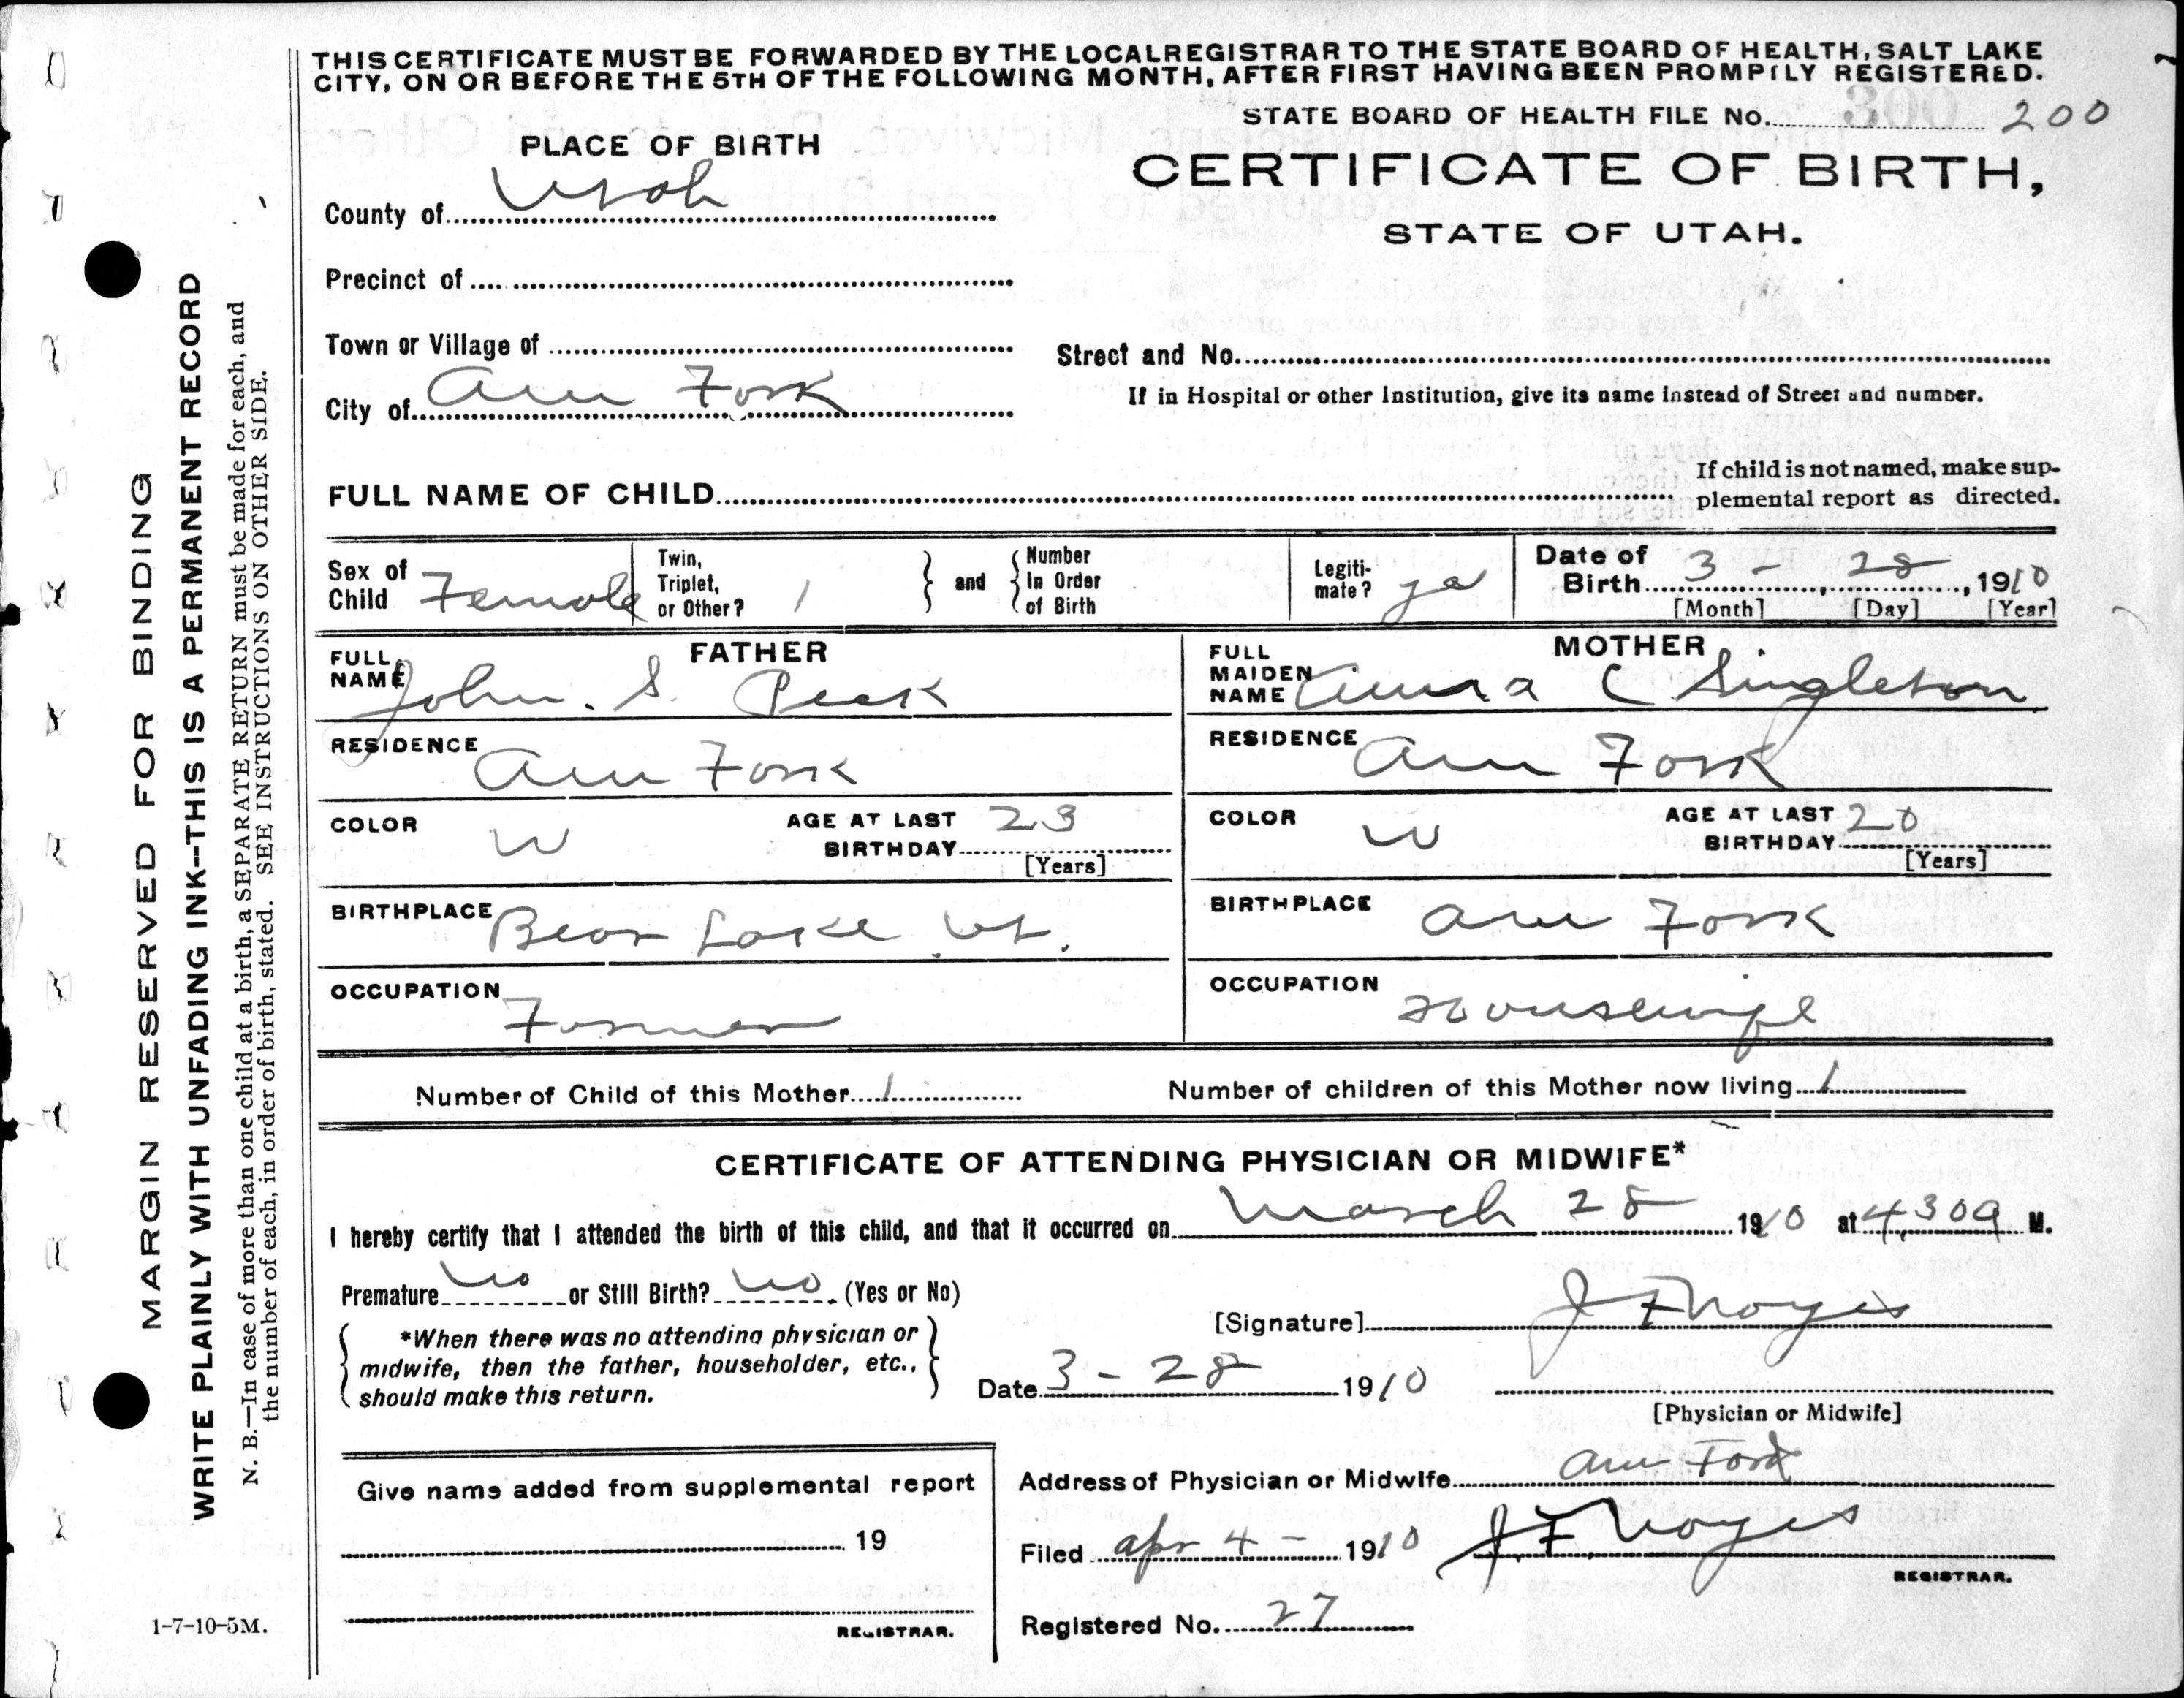 THIS CERTIFICATE MUST BE FORWARDED BY THE LOCAL REGISTRAR TO THE STATE BOARD OF HEALTH, SALT LAKE
CITY, ON OR BEFORE THE 5TH OF THE FOLLOWING MONTH, AFTER FIRST HAVING BEEN PROMPTLY REGISTERED.
STATE BOARD OF HEALTH FILE No. 200
PLACE OF BIRTH
CERTIFICATE OF BIRTH,
STATE OF UTAH.
County of Utah
Precinct of
Town or Village of
Street and No.
City of Am Fork
If in Hospital or other Institution, give its name instead of Street and number.
FULL NAME OF CHILD
If child is not named, make sup-
plemental report as directed.
Sex of Child Female
Twin, Triplet, or Other? 1
and
Number In Order of Birth
Legiti-mate? yes
Date of Birth 3 - 28, 1910
[Month] [Day] [Year]
FATHER
FULL NAME John. S. Peck
RESIDENCE Am Fork
COLOR W
AGE AT LAST BIRTHDAY 23
[Years]
BIRTHPLACE Bear Lake Ut.
OCCUPATION Farmer
MOTHER
FULL MAIDEN NAME C Singleton
RESIDENCE Am Fork
COLOR W
AGE AT LAST BIRTHDAY 20
[Years]
BIRTHPLACE Am Fork
OCCUPATION Housewife
Number of Child of this Mother 1
Number of children of this Mother now living 1
CERTIFICATE OF ATTENDING PHYSICIAN OR MIDWIFE*
I hereby certify that I attended the birth of this child, and that it occurred on March 28 1910 at 4,30 a M.
Premature no or Still Birth? no. (Yes or No)
*When there was no attending physician or
midwife, then the father, householder, etc.,
should make this return.
[Signature] J F Noyes
Date 3 - 28 1910
[Physician or Midwife]
Give name added from supplemental report
19
REGISTRAR.
Address of Physician or Midwife Am Fork
Filed Apr 4 - 1910 J. F. Noyes
REGISTRAR.
Registered No. 27
1-7-10-5M.
MARGIN RESERVED FOR BINDING
WRITE PLAINLY WITH UNFADING INK--THIS IS A PERMANENT RECORD
N. B.—In case of more than one child at a birth, a SEPARATE RETURN must be made for each, and
the number of each, in order of birth, stated. SEE INSTRUCTIONS ON OTHER SIDE.